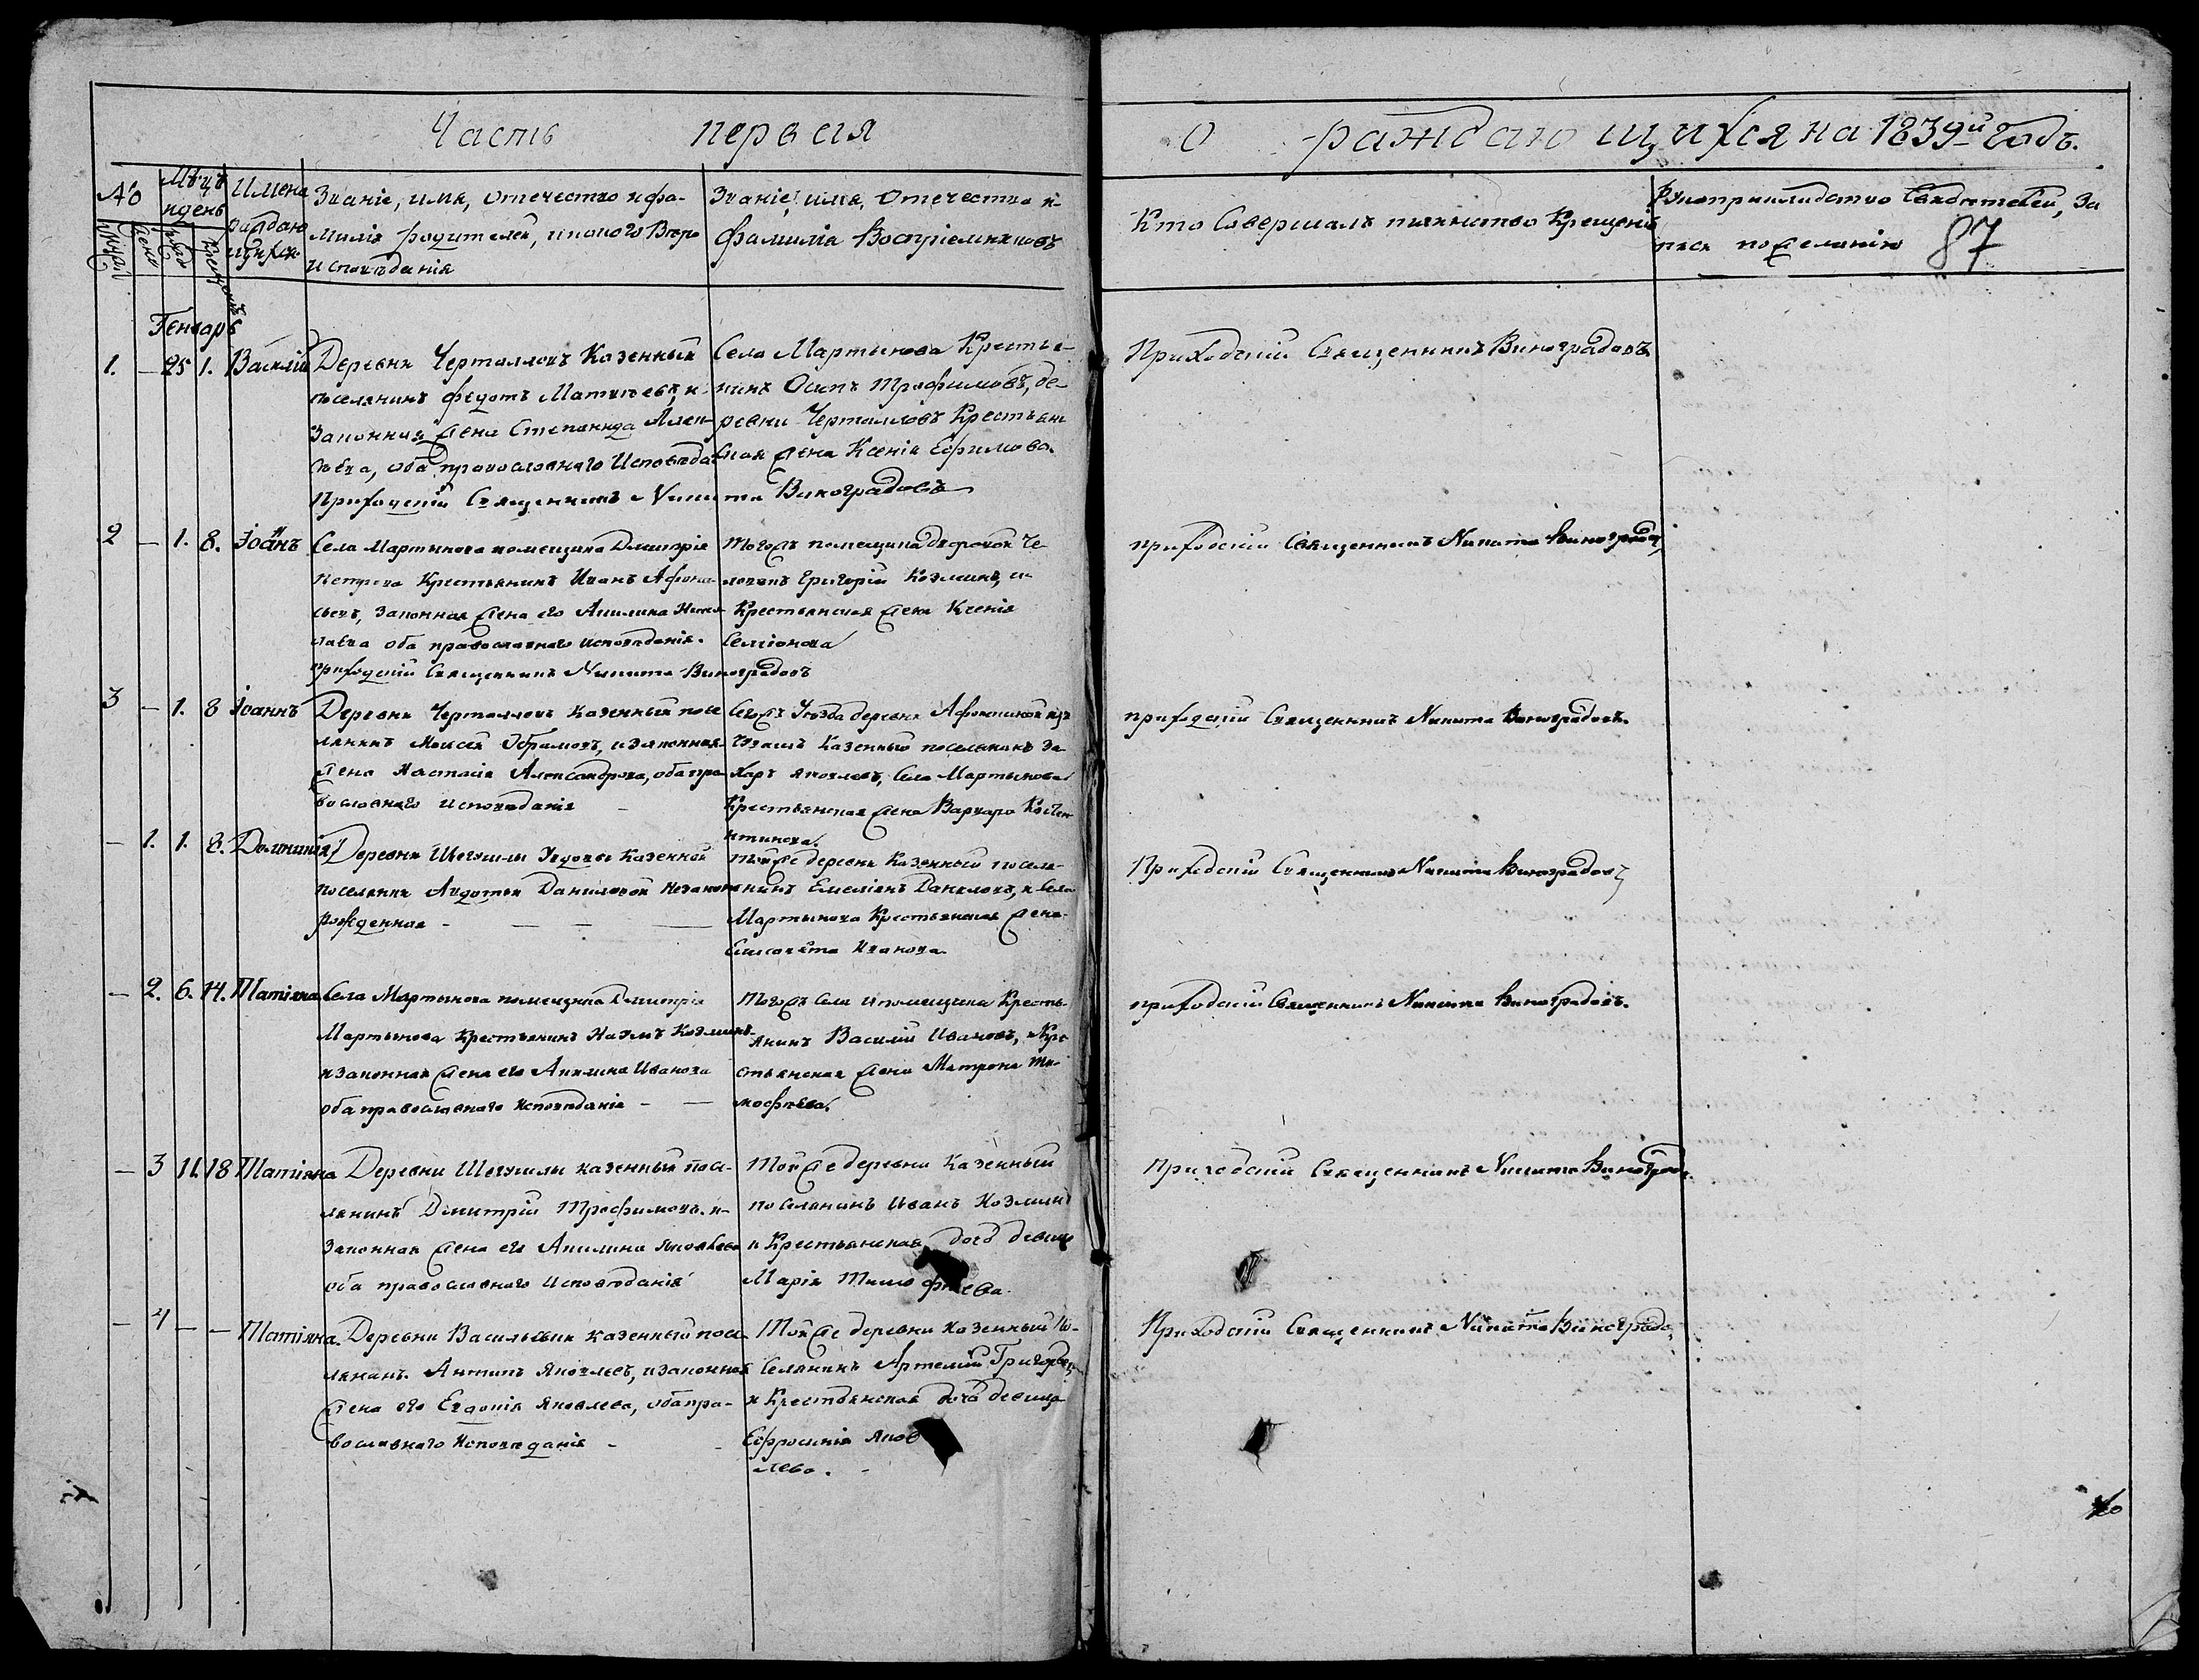 Часть первая
О раждающихся на 1839й годъ.
№
Мѣцъ и день
Имена раждающихся
Званіе, имя, отечество и фамилія родителей, и какого Вѣроисповѣданія
Званіе, имя, отечество и фамилія Воспріемниковъ
Кто Совершалъ таинство Крещенія
Рукоприкладство Свидѣтелей, записи по желанію
87
Генварь
1. — 25 1. Василій
Деревни Черталловъ Казенный
поселянинъ Федотъ Матвѣевъ, и
Законная жена Степанида
оба православнаго Исповѣда
Приходскій Священникъ Никита Виноградовъ
Села Мартынова Крестья-
нинъ Осипъ Трофимовъ, де-
ревни Черталловъ Крестьян
ская жена Ксенія Ефимова.
Приходскій Священникъ Виноградовъ
2 — 1. 8. Іоаннъ
Села Мартынова помещика Дмитрія
Крестьянинъ Иванъ Афона-
сьевъ, Законная жена его Акилина
оба православнаго исповѣданія.
приходскій Священникъ Никита Виноградовъ
Тогожъ помещика дворовой че-
ловекъ Григорій Козминъ, и
Крестьянская жена Ксенія
Семіонова
приходскій Священникъ Никита Виноградо
3 — 1. 8 Іоаннъ
Деревни Черталловъ казенный посе
лянинъ Моисей Абрамовъ, и законная
жена Настасія Александрова, оба пра
вославнаго исповѣданія —
Сегожъ Уѣзда деревни
Казенный поселянинъ За
харъ Яковлевъ, Села Мартынова
Крестьянская жена Варвара Костен
нтинова.
приходскій Священникъ Никита Виноградовъ.
— 1. 1. 8. Домникія
Деревни Шегушмы Вдовы Казенной
поселянки Авдотьи Даниловой Незаконно
рожденная — — — —
Тойже деревни Казенный поселя-
нинъ Емеліянъ Даниловъ, и Села
Мартынова Крестьянская жена
Елисавета Иванова.
Приходскій Священникъ Никита Виноградовъ
— 2. 6. 14. Татіяна
Села Мартынова помещика Дмитрія
Мартынова Крестьянинъ Наумъ Козминъ
и законная жена его Акилина Иванова
оба православнаго исповѣданія — —
Тогожъ Села и помещика Кресть-
янинъ Василій Ивановъ, и Кре
стьянская жена Матрона Ти-
мофѣева.
приходскій Священникъ Никита Виноградовъ.
— 3 11. 18 Татіяна
Деревни Шегушмы казенный посе-
лянинъ Дмитрій Трофимовъ. и
Законная жена его Акилина Яковлева
оба православнаго исповѣданія
Тойже деревни Казенный
поселянинъ Иванъ Козминъ
и Крестьянская дочь девица
Марія Тимофѣева.
приходскій Священникъ Никита Виноград
— 4 — — Татіяна.
Деревни Васильевки казенный посе
лянинъ. Антипъ Яковлевъ, и законная
жена его Евдокія Яковлева, оба пра-
вославнаго Исповѣданія — —
Тойже деревни Казенный По-
селянинъ Артемій Григорьевъ,
и Крестьянская дочь девица
Ефросинія Яков
лева. —
Приходскій Священникъ Никита Виноградо